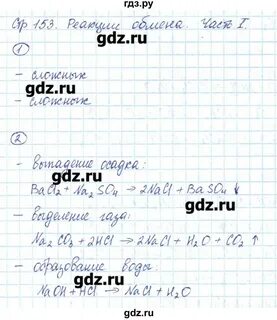 гдз.ру
Стр 153. Реакции обмена. Часть I.
gdz.ru
①
- сложных
- сложных
②
- выпадение осадка:
BaCl₂ + Na₂SO₄ → 2NaCl + BaSO₄ ↓
gdz.ru gdz.ru
- выделение газа:
Na₂CO₃ + 2HCl → 2NaCl + H₂O + CO₂ ↑
- образование воды:
NaOH + HCl → NaCl + H₂O
gdz.ru